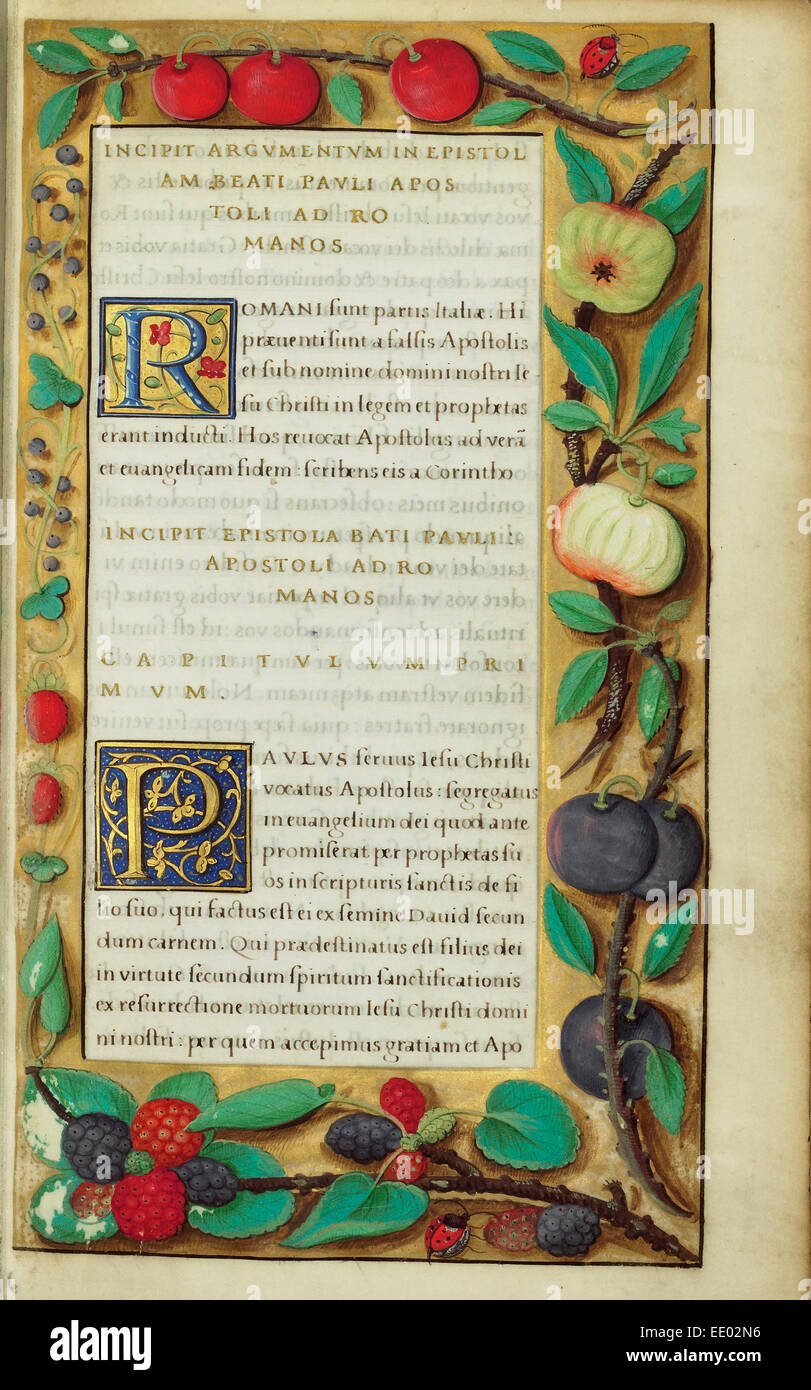 INCIPIT ARGVMENTVM IN EPISTOL
AM BEATI PAVLI APOS
TOLI AD RO
MANOS
ROMANI ſunt partis Italiæ. Hi
præuenti ſunt a falſis Apoſtolis
et ſub nomine domini noſtri Ie
ſu Chriſti in legem et prophetas
erant inducti. Hos reuocat Apoſtolus ad verã
et euangelicam fidem: ſcribens eis a Corintho
INCIPIT EPISTOLA BATI PAVLI:
APOSTOLI AD RO
MANOS
CAPITVLVM PRI
MVM.
PAVLVS ſeruus Ieſu Chriſti
vocatus Apoſtolus: ſegregatus
in euangelium dei quod ante
promiſerat per prophetas ſu
os in ſcripturis ſanctis de fi
lio ſuo, qui factus eſt ei ex ſemine Dauid ſecun
dum carnem. Qui prædeſtinatus eſt filius dei
in virtute ſecundum ſpiritum ſanctificationis
ex reſurrectione mortuorum Ieſu Chriſti domi
ni noſtri: per quem accepimus gratiam et Apo
alamy
Image ID: EE02N6
www.alamy.com